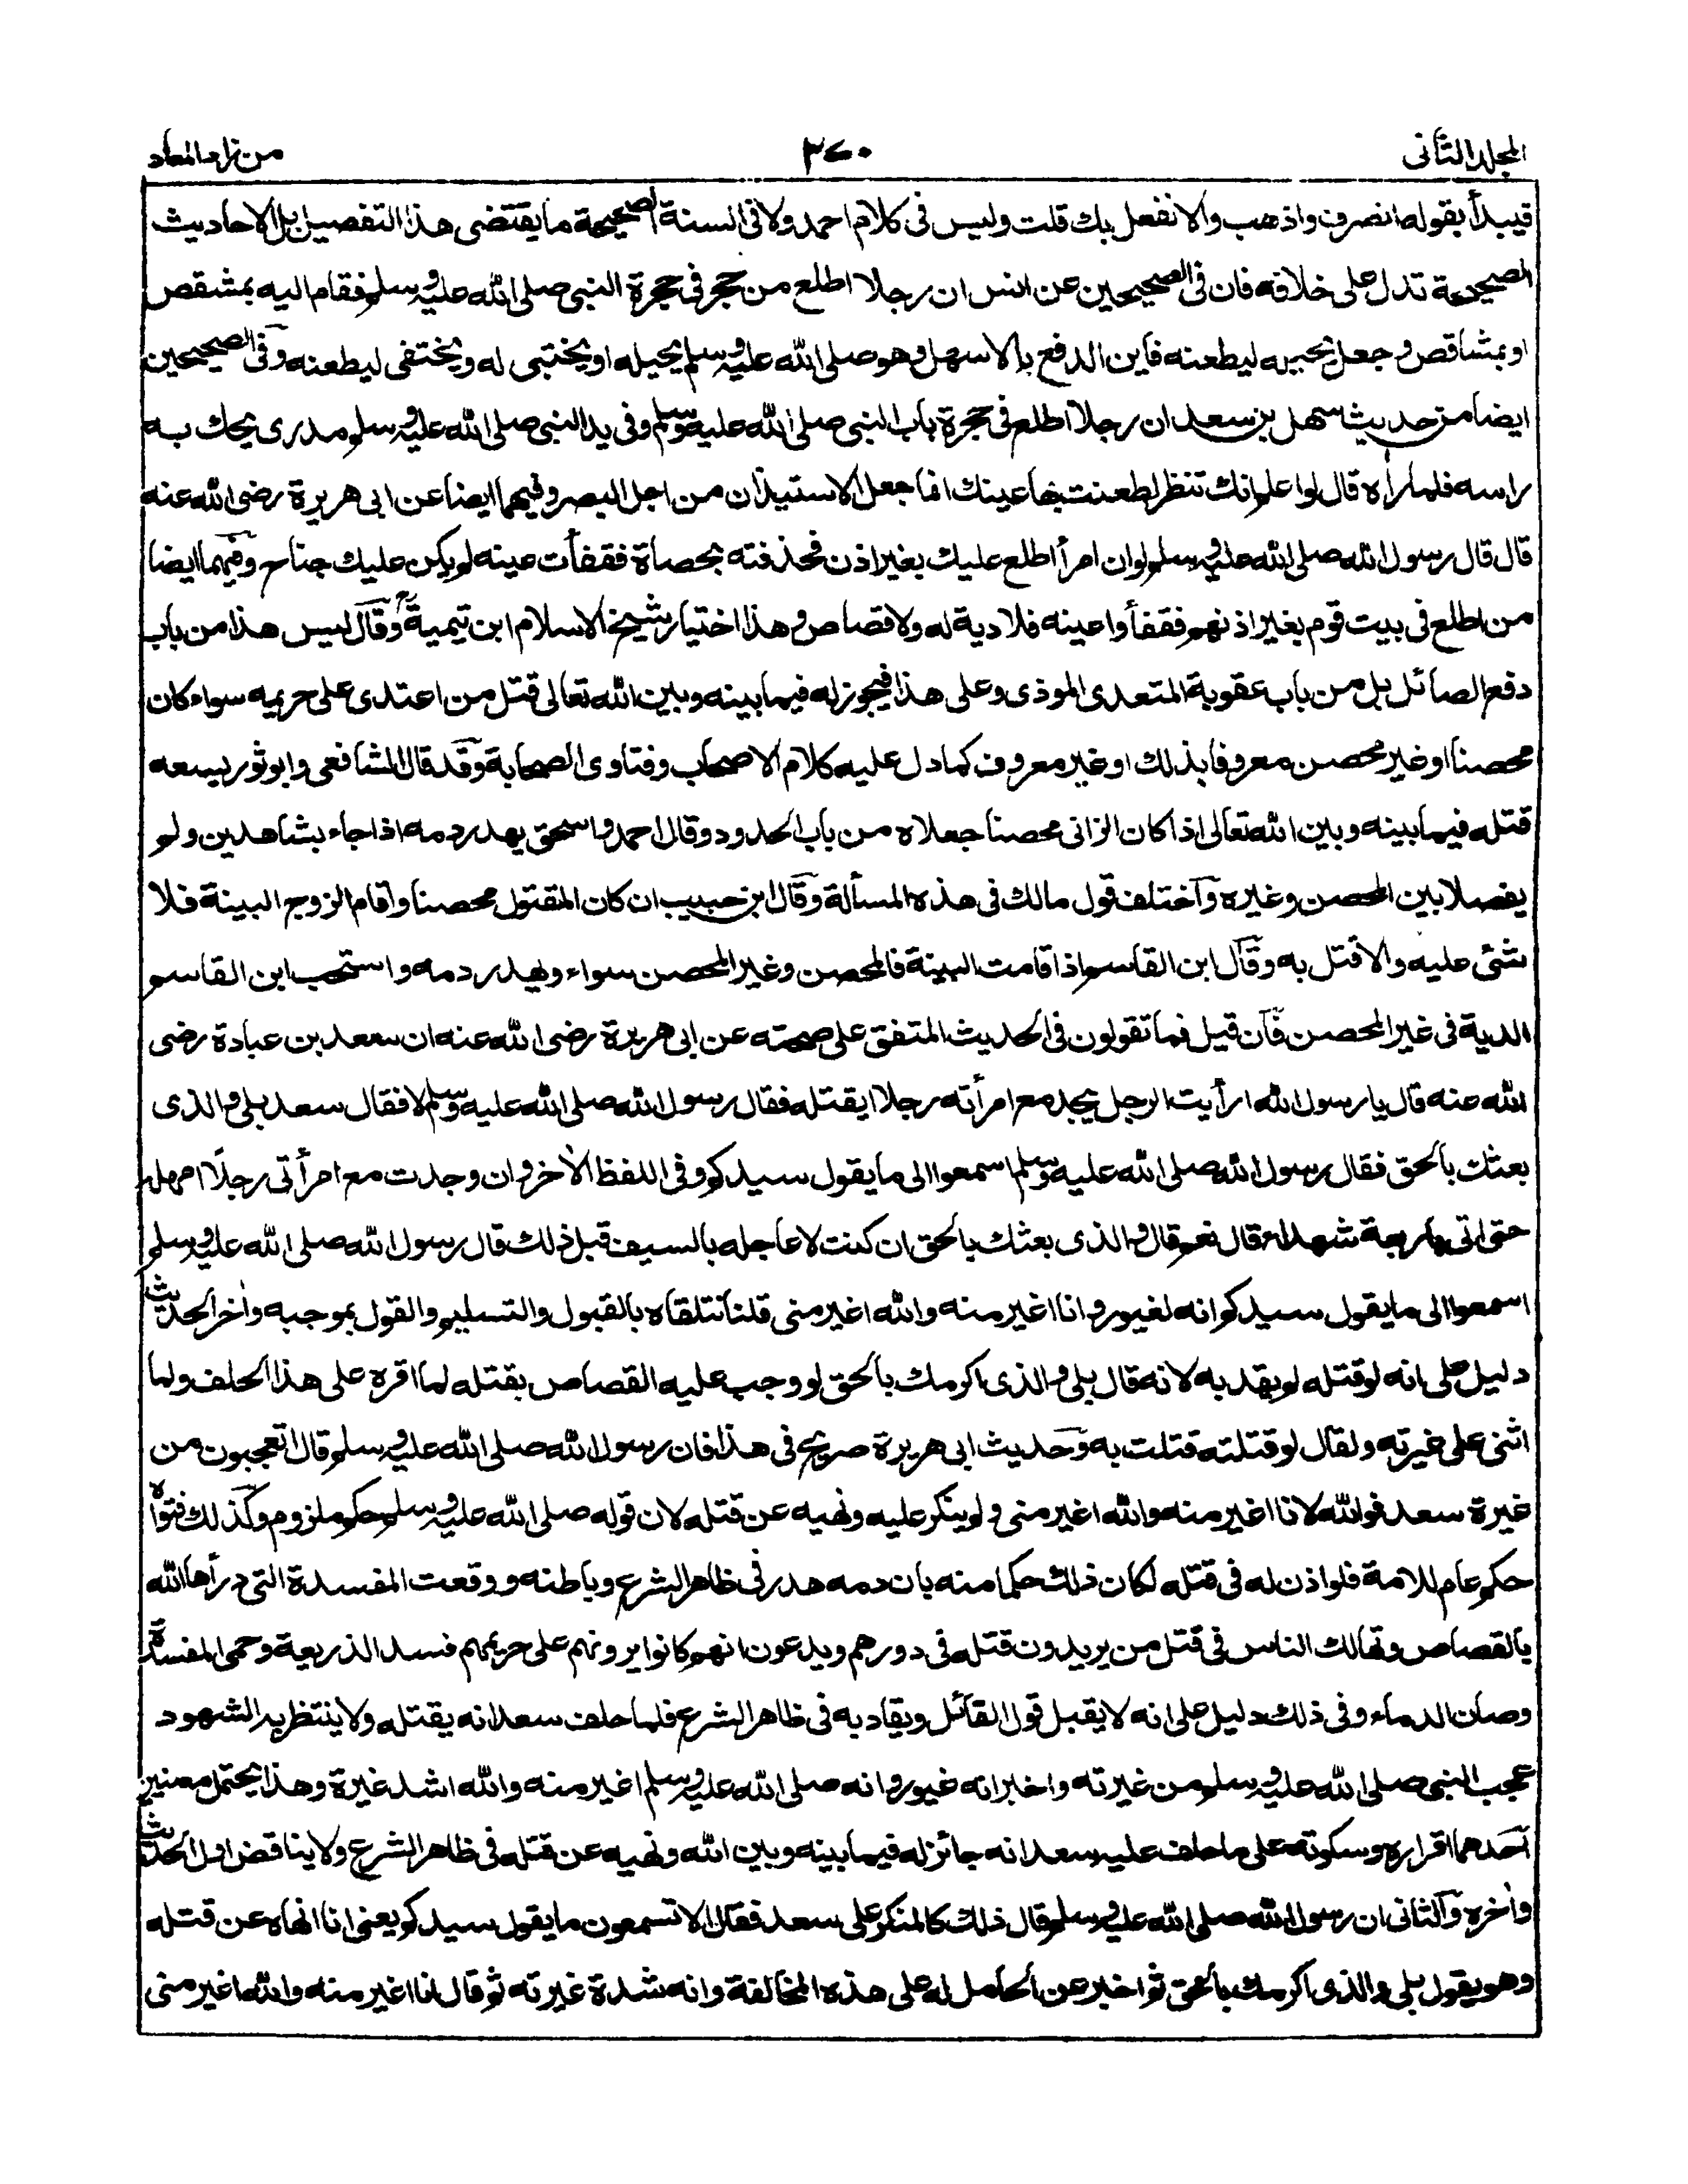 المجلد الثانى
٣٧٠
من زاد المعاد
فيبدأ بقوله انصرف واذهب والا نفعل بك قلت وليس فى كلام احمد ولا فى السنة الصحيحة ما يقتضى هذا التفصيل بل الاحاديث
الصحيحة تدل على خلافه فان فى الصحيحين عن انس ان رجلا اطلع من حجر فى حجرة النبى صلى الله عليه وسلم فقام اليه بمشقص
او بمشاقص وجعل يختله ليطعنه فاين الدفع بالاسهل وهو صلى الله عليه وسلم يختله او يختبى له ويختفى ليطعنه وفى الصحيحين
ايضا من حديث سهل بن سعد ان رجلا اطلع فى حجرة باب النبى صلى الله عليه وسلم وفى يد النبى صلى الله عليه وسلم مدرى يحك به
راسه فلما راه قال لو اعلم انك تنظر لطعنت بها عينك انما جعل الاستيذان من اجل البصر وفيهما ايضا عن ابى هريرة رضى الله عنه
قال قال رسول الله صلى الله عليه وسلم لو ان امرأ اطلع عليك بغير اذن فحذفته بحصاة ففقأت عينه لم يكن عليك جناح وفيهما ايضا
من اطلع فى بيت قوم بغير اذنهم ففقأوا عينه فلا دية له ولا قصاص وهذا اختيار شيخ الاسلام ابن تيمية وقال ليس هذا من باب
دفع الصائل بل من باب عقوبة المتعدى الموذى وعلى هذا فيجوز له فيما بينه وبين الله تعالى قتل من اعتدى على حريمه سواء كان
محصنا او غير محصن معروفا بذلك او غير معروف كما دل عليه كلام الاصحاب وفتاوى الصحابة وقد قال الشافعى وابو ثور يسعه
قتله فيما بينه وبين الله تعالى اذا كان الزانى محصنا جعلاه من باب الحدود وقال احمد واسحق يهدر دمه اذا جاء بشاهدين ولم
يفصلا بين المحصن وغيره واختلف قول مالك فى هذه المسألة وقال ابن حبيب ان كان المقتول محصنا واقام الزوج البينة فلا
شئ عليه والا قتل به وقال ابن القاسم اذا قامت البينة فالمحصن وغير المحصن سواء ويهدر دمه واستحب ابن القاسم
الدية فى غير المحصن فان قيل فما تقولون فى الحديث المتفق على صحته عن ابى هريرة رضى الله عنه ان سعد بن عبادة رضى
الله عنه قال يا رسول الله ارأيت الرجل يجد مع امرأته رجلا ايقتله فقال رسول الله صلى الله عليه وسلم لا فقال سعد بلى والذى
بعثك بالحق فقال رسول الله صلى الله عليه وسلم اسمعوا الى ما يقول سيدكم وفى اللفظ الاخر وان وجدت مع امرأتى رجلا امهله
حتى اتى باربعة شهداء قال نعم قال والذى بعثك بالحق ان كنت لاعاجله بالسيف قبل ذلك قال رسول الله صلى الله عليه وسلم
اسمعوا الى ما يقول سيدكم انه لغيور وانا اغير منه والله اغير منى قلنا نتلقاه بالقبول والتسليم والقول بموجبه واخر الحديث
دليل على انه لو قتله لم يقد به لانه قال بلى والذى اكرمك بالحق لو وجب عليه القصاص بقتله لما اقره على هذا الحلف ولما
اثنى على غيرته ولقال لو قتلته قتلت به وحديث ابى هريرة صريح فى هذا فان رسول الله صلى الله عليه وسلم قال اتعجبون من
غيرة سعد فوالله لانا اغير منه والله اغير منى ولم ينكر عليه ونهيه عن قتله لان قوله صلى الله عليه وسلم حكم ملزوم وكذلك فتواه
حكم عام للامة فلو اذن له فى قتله لكان ذلك حكما منه بان دمه هدر فى ظاهر الشرع وباطنه ووقعت المفسدة التى درأها الله
بالقصاص وتهالك الناس فى قتل من يريدون قتله فى دورهم ويدعون انهم كانوا يرونهم على حريمهم فسد الذريعة وحمى المفسدة
وصان الدماء وفى ذلك دليل على انه لا يقبل قول القائل ويقاد به فى ظاهر الشرع فلما حلف سعد انه يقتله ولا ينتظر به الشهود
عجب النبى صلى الله عليه وسلم من غيرته واخبر انه غيور وانه صلى الله عليه وسلم اغير منه والله اشد غيرة وهذا يحتمل معنيين
احدهما اقراره وسكوته على ما حلف عليه سعد انه جائز له فيما بينه وبين الله ونهيه عن قتله فى ظاهر الشرع ولا يناقض اول الحديث
واخره والثانى ان رسول الله صلى الله عليه وسلم قال ذلك كالمنكر على سعد فقال الا تسمعون ما يقول سيدكم يعنى انا انهاه عن قتله
وهو يقول بلى والذى اكرمك بالحق ثم اخبر عن الحامل له على هذه المخالفة وانه شدة غيرته ثم قال انا اغير منه والله اغير منى